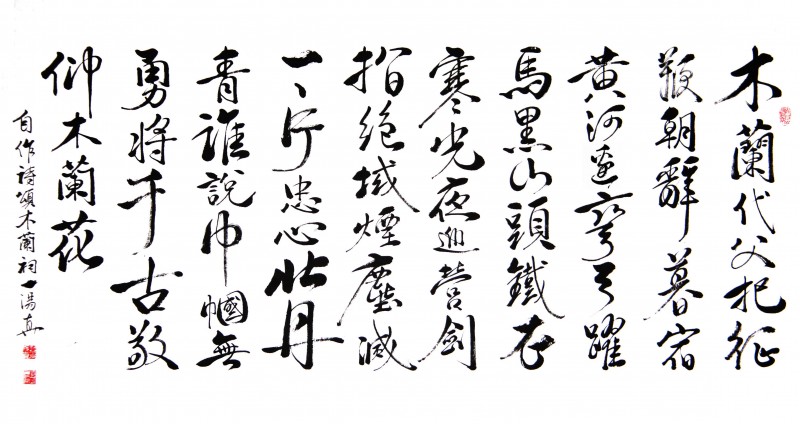 木蘭代父把征
鞍朝辭暮宿
黃河邊彎弓躍
馬黑山頭鐵衣
寒光夜巡營劍
指絕域煙塵滅
一片忠心壯丹
青誰說巾幗無
勇將千古敬
仰木蘭花
自作詩頌木蘭祠一湯真